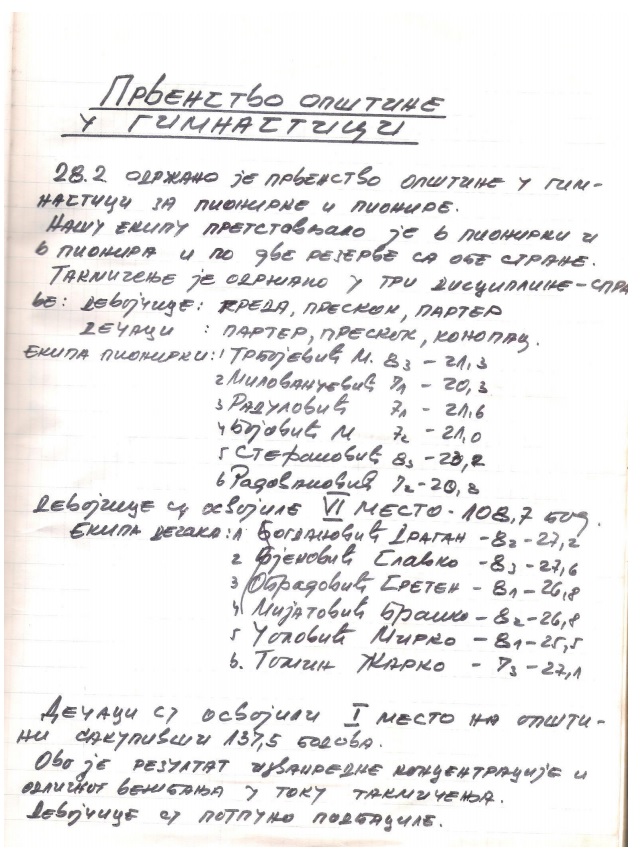 ПРВЕНСТВО ОПШТИНЕ
У ГИМНАСТИЦИ
28.2 ОДРЖАНО ЈЕ ПРВЕНСТВО ОПШТИНЕ У ГИМ-
НАСТИЦИ ЗА ПИОНИРКЕ И ПИОНИРЕ.
НАШУ ЕКИПУ ПРЕТСТАВЉАЛО ЈЕ 6 ПИОНИРКИ И
6 ПИОНИРА И ПО ДВЕ РЕЗЕРВЕ СА ОБЕ СТРАНЕ.
ТАКМИЧЕЊЕ ЈЕ ОДРЖАНО У ТРИ ДИСЦИПЛИНЕ-СПРА
ВЕ: ДЕВОЈЧИЦЕ: ГРЕДА, ПРЕСКОК, ПАРТЕР
ДЕЧАЦИ : ПАРТЕР, ПРЕСКОК, КОНОПАЦ.
ЕКИПА ПИОНИРКИ: 1 ТРБОЈЕВИЋ М. 8₃ - 21,3
2 МИЛОВАНЧЕВИЋ 7₁ - 20,3
3 РАДУЛОВИЋ 7₁ - 21,6
4 БОЈОВИЋ М 7₂ - 21,0
5 СТЕФАНОВИЋ 8₃ -
6 РАДОВАНОВИЋ 7₂ - 20,8
ДЕВОЈЧИЦЕ СУ ОСВОЈИЛЕ VI МЕСТО - 108,7 БОД.
ЕКИПА ДЕЧАКА: 1 БОГДАНОВИЋ ДРАГАН - 8₂ - 27,2
2 БЈЕНОВИЋ СЛАВКО - 8₃ - 27,6
3 ОБРАДОВИЋ СРЕТЕН - 8₁ - 26,8
4 МИЈАТОВИЋ БРАНКО - 8₂ - 26,8
5 МИРКО - 8₁ - 25,5
6. ТОМИН ЖАРКО - 7₃ - 27,1
ДЕЧАЦИ СУ ОСВОЈИЛИ I МЕСТО НА ОПШТИ-
НИ САКУПИВШИ 137,5 БОДОВА.
ОВО ЈЕ РЕЗУЛТАТ ИЗВАНРЕДНЕ КОНЦЕНТРАЦИЈЕ И
ОДЛИЧНОГ ВЕЖБАЊА У ТОКУ ТАКМИЧЕЊА.
ДЕВОЈЧИЦЕ СУ ПОТПУНО ПОДБАЦИЛЕ.